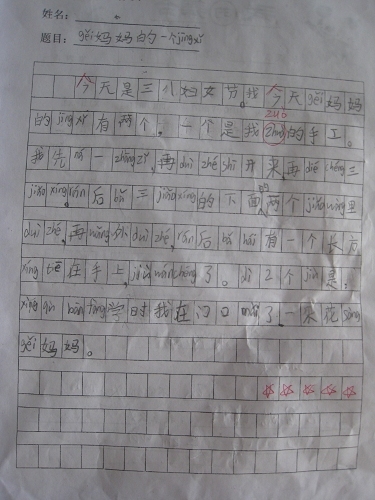 姓名:
题目: gěi妈妈的一个jīngxǐ
今天是三八妇女节。我今天gěi妈妈
zuò
的jīngxǐ有两个。一个是我zhuō的手工。
我先ná一zhāngzǐ,再duì zhé shì开来,再zhé chéng三
jiǎo xíng,rán后bǎ三jiǎoxíng的下面的两个jiǎo wǎng里
duì zhé,再wǎng外duì zhé,rán后bǎ hái有一个长方
xíng tiē在手上,jiù wánchéng了。dì2个jīn是:
xīng qī bān fàng学时我在门口mǎi了一朵花sòng
gěi妈妈。